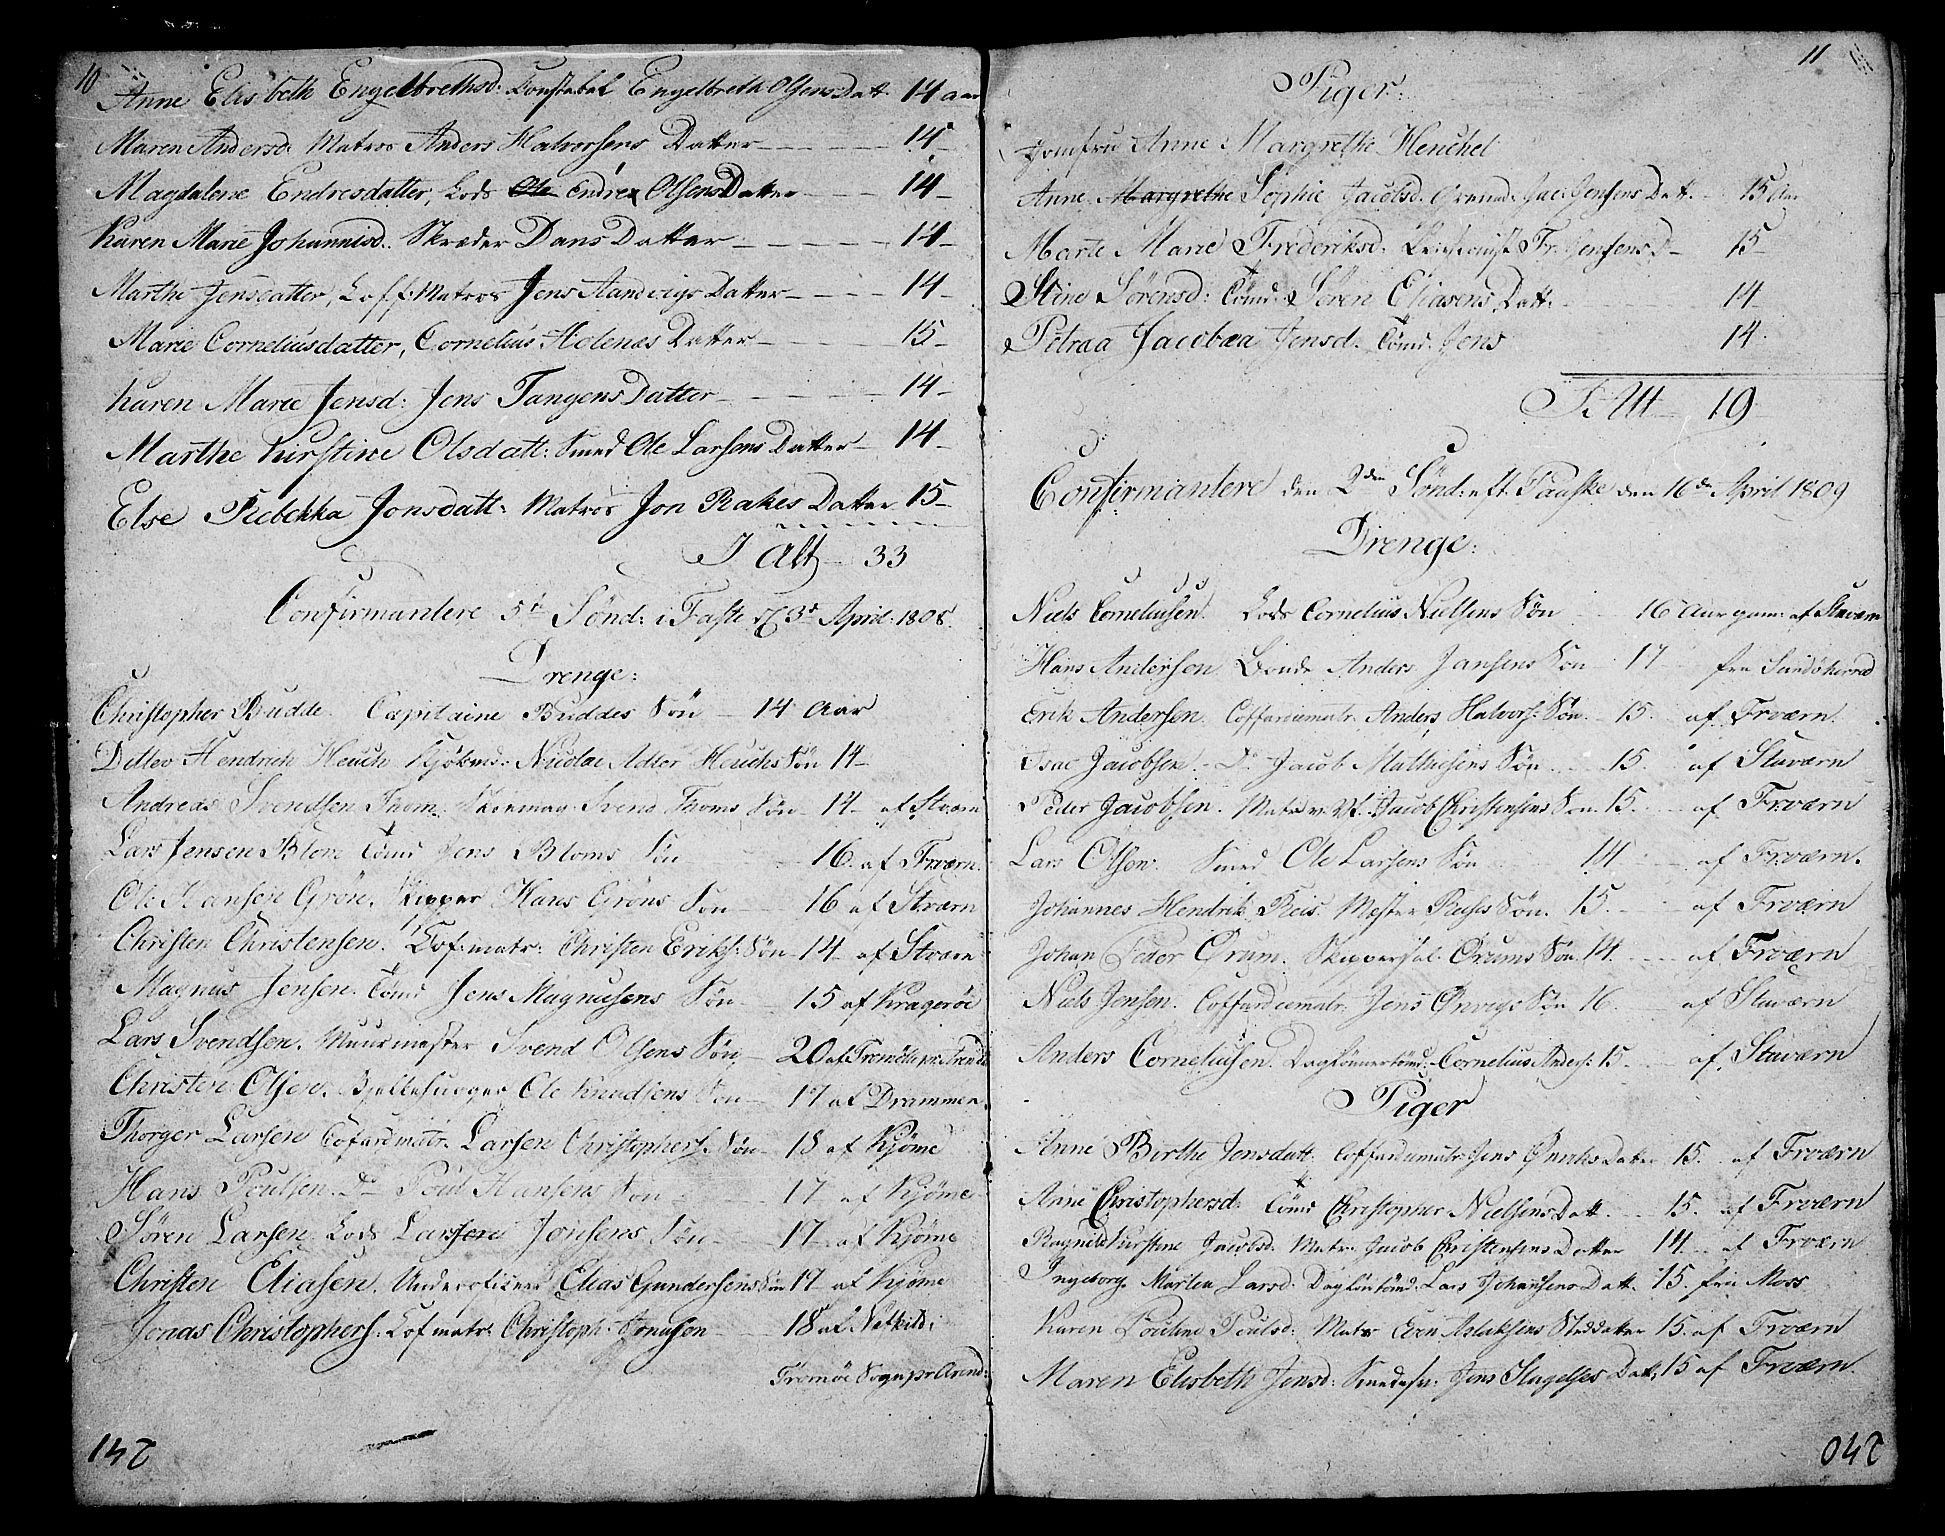 10
Anne Elisbeth Engelbrethsd: Constabel Engelbreth Olsens Datt. 14 aar
Maren Andersd. Matros Anders Halvorsens Datter - 14 -
Magdalene Endresdatter, Lods Ole Endre Olsens Datter - 14 -
Karen Marie Johannisd. Skræder Dans Datter - 14 -
Marthe Jensdatter, Coff: Matros Jens Aandvigs Datter - 14 -
Marie Corneliusdatter, Cornelius Helenæs Datter - 15 -
Karen Marie Jensd: Jens Tangens Datter - 14 -
Marthe Kirstine Olsdatt: Smed Ole Larsens Datter - 14 -
Else Rebekka Jonsdatt: Matros Jon Rakes Datter 15 -
I Alt - 33
Confirmantere 5te Sönd: i Faste d 3d April 1808.
Drenge:
Christopher Budde. Capitaine Buddes Sön - 14 Aar
Detlev Hendrich Heuch Kjöbmd: Nicolai Adler Heuchs Sön 14 -
Andreas Svendsen Thom. Svend Thoms Sön - 14 - af Stværn
Lars Jensen Blom Tömd Jens Bloms Sön 16. af Frværn.
Ole Hansen Grön. Skipper Hans Gröns Sön - 16 af Stværn
Christen Christensen. Cof: matr: Christen Eriks: Sön - 14 - af Stværn
Magnus Jensen. Tömd Jens Magnusens Sön - 15 af Krageröe
Lars Svendsen. Muurmester Svend Olsens Sön - 20 af Tromöe pr. Arendl
Christen Olsen. Ole Knudsens Sön - 17 af Drammen.
Thorger Larsen Cofardmatr. Larsen Christophers: Sön - 18 af Kjöme
Hans Poulsen. Do Poul Hansens Sön - 17 af Kjöme
Sören Larsen. Lods Larsen Jonsens Sön - 17 af Kjöme
Christen Eliasen. Underofficer Elias Gundersens Sön 17 - af Kjöme
Jonas Christophers: Cof matr: Christoph: Jonasen - 18 af
Tromöe Sogn pr Arend:
147
11
Piger:
Jomfru Anne Margrethe Heuchel
Anne Margrethe Sophie Jacobsd. Jac: Jensens Datt. - 15 Aar
Marte Marie Frederiksd: Fr. Jensens D - 15 -
Stine Sörensd: Tömd: Sören Eliasens Datt: 14
Petraa Jacobæa Jensd: Tömd: Jens 14.
I Alt - 19
Confirmantere den 2den Sönd: eft. Paaske den 16de April 1809
Drenge:
Niels Corneliusen. Lods Cornelius Nielsens Sön - 16 Aar gam: af Stværn
Hans Andersen Bonde Anders Jansens Sön 17 fra Sandsherred
Erik Andersen. Coffardiematr. Anders Halvors: Sön. - 15. af Frværn.
Isac Jacobsen - Do Jacob Mathisens Sön 15. af Staværn
Peder Jacobsen. Matr: v. Vf. Jacob Christensens Sön 15. af Frværn
Lars Olsen. Smed Ole Larsens Sön 14 af Frværn.
Johannes Hendrik Reis. Mester Reises Sön. 15. af Frværn
Johan Peder Örum. Skipper sal. Örums Sön 14. af Frværn
Niels Jensen. Coffardiematr. Jens Önvigs Sön 16. af Staværn
Anders Corneliusen. Daglönnertömd: Cornelius Anders: 15. af Staværn
Piger
Anne Birthe Jensdatt. Coffardiematr: Jens Datter 15. af Frværn
Anne Christophersd: Tömd Christopher Nielsens Datt. 15. af Frværn
Ragnild Kirstine Jacobsd. Matr. Jacob Christensens Datter 14. af Frværn
Ingeborg Martea Larsd: Daglöntömd: Lars Johansens Datt. 15. fra Moss
Karen Pouline Poulsd: Matr Even Aslaksens Steddatter 15. af Frværn
Maren Elisbeth Jensd: Smedesv: Jens Slagelses Datt, 15 af Frværn.
042